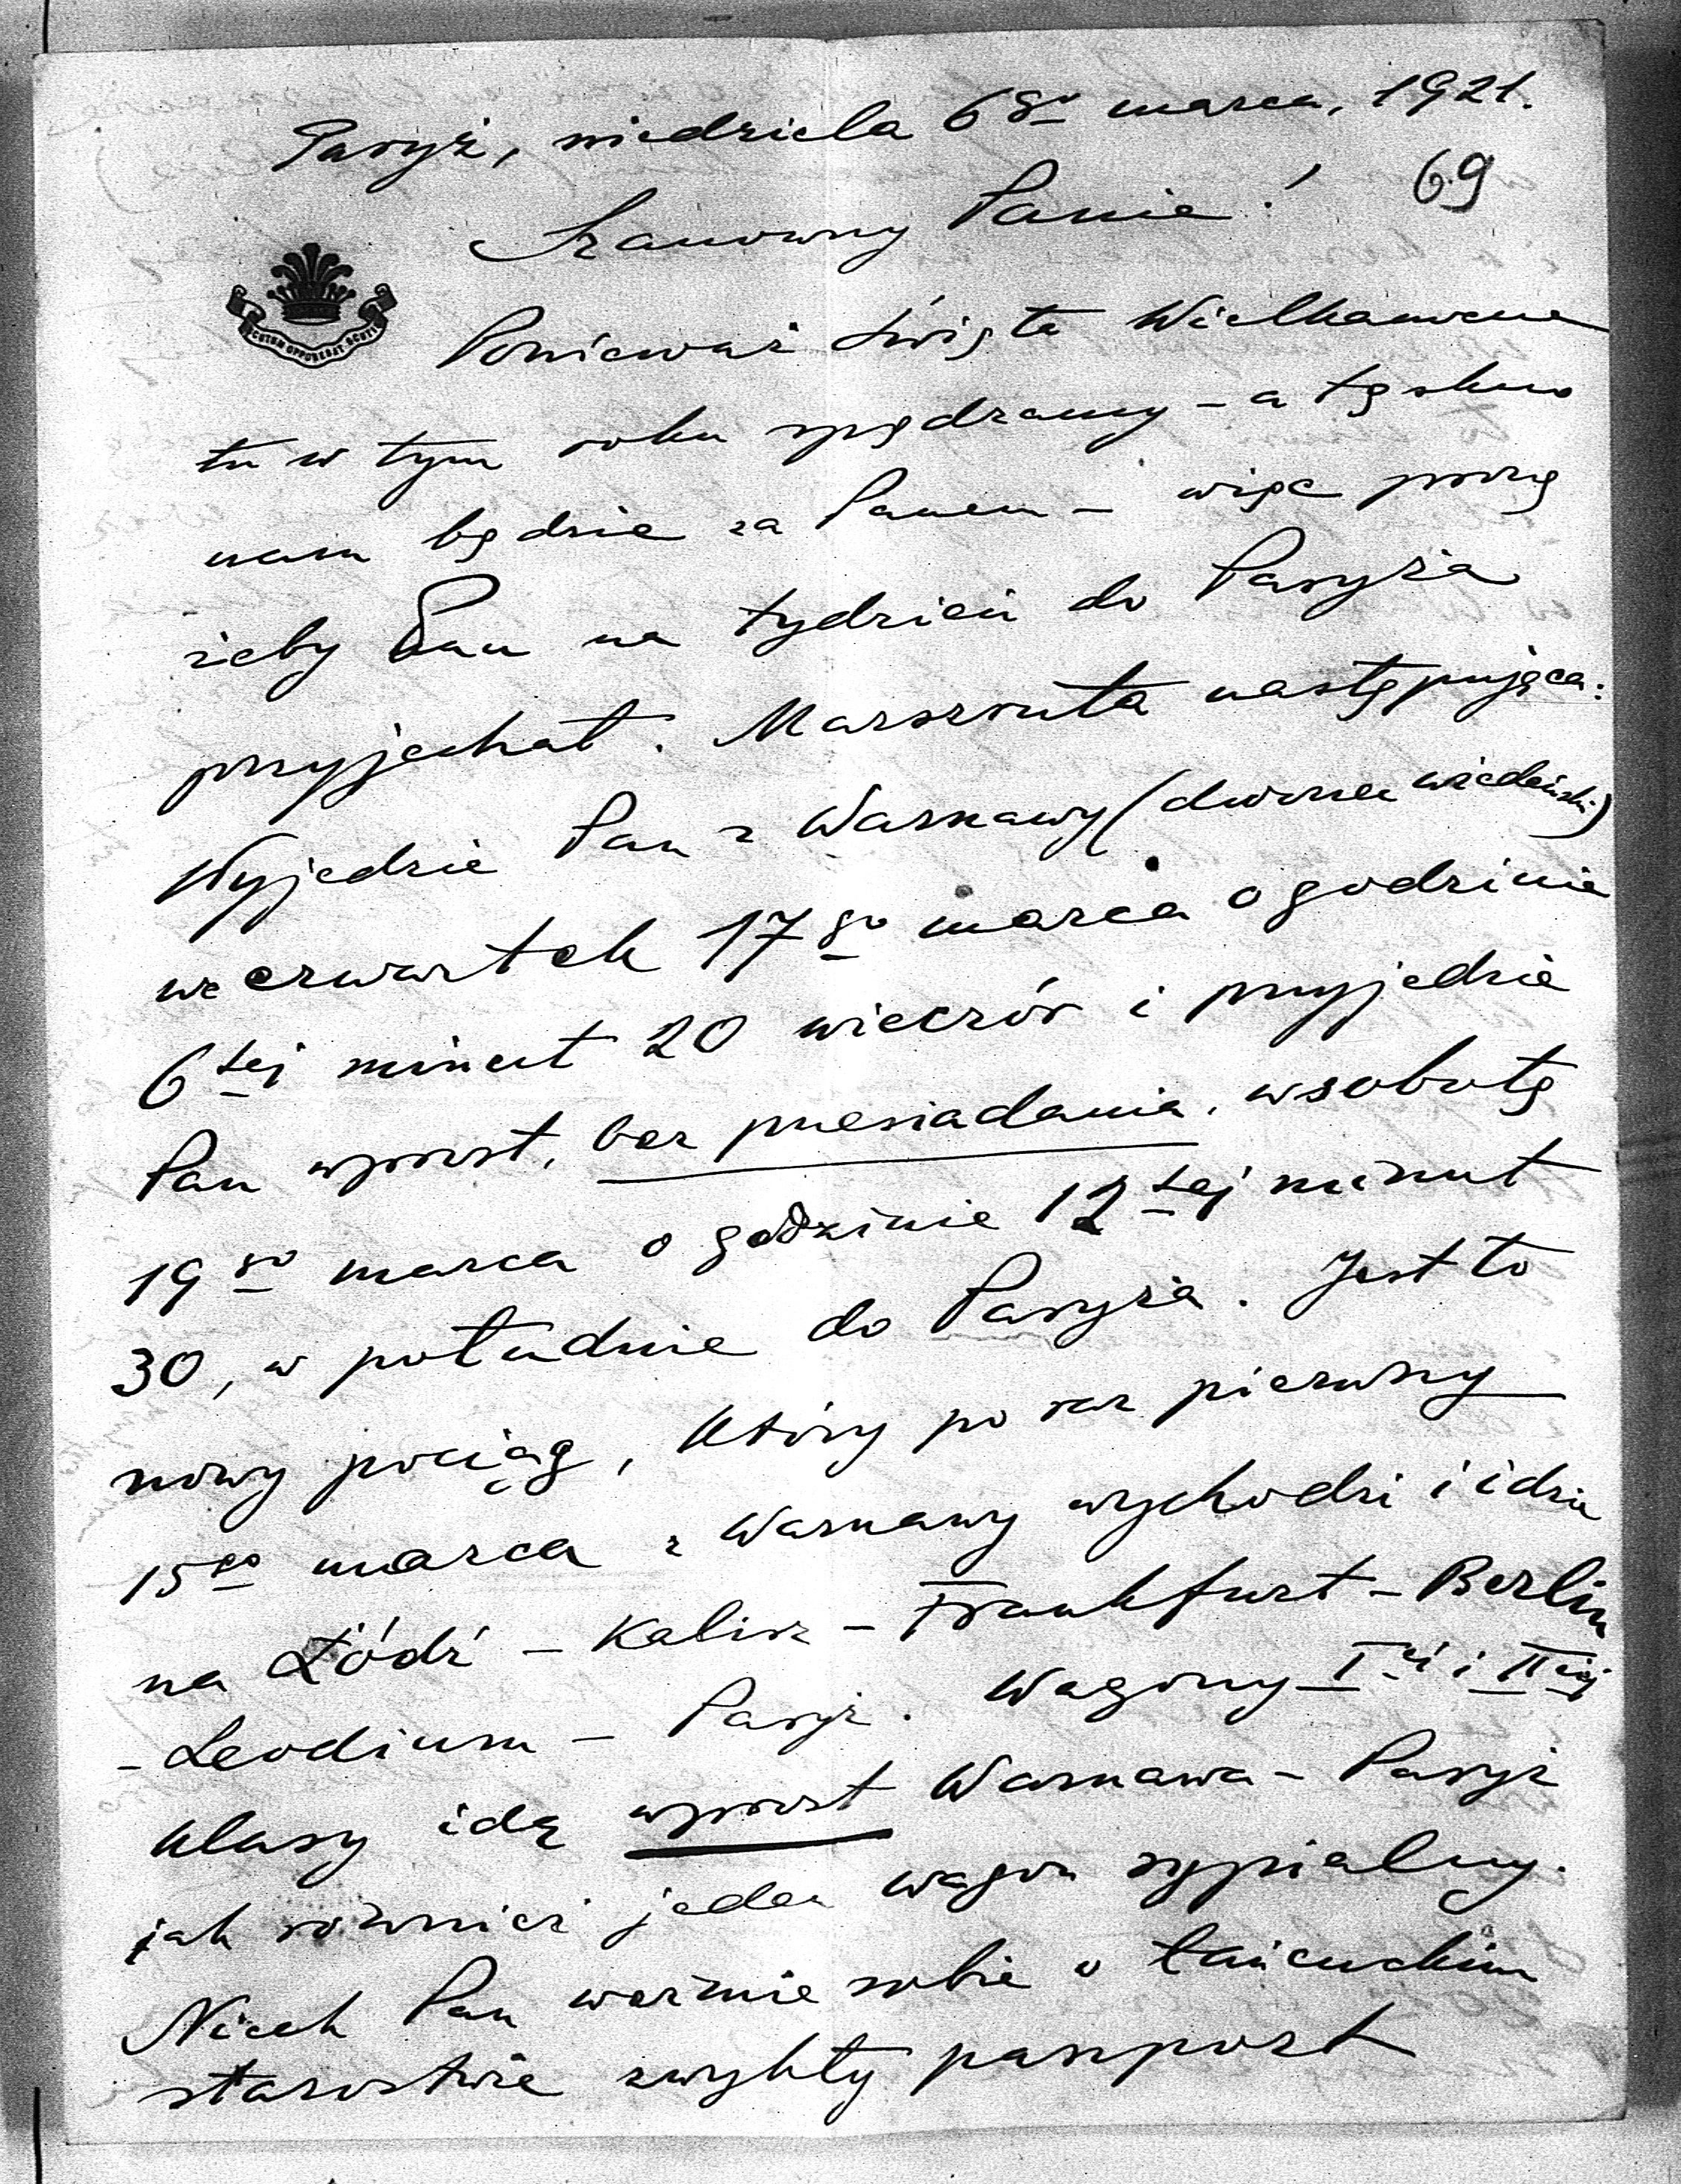 Paryż, niedziela 6go marca, 1921.
69
Szanowny Panie!
SCUTUM OPPONEBAT SCUTIS
Ponieważ święta Wielkanocne
tu w tym roku spędzamy – a tęskno
nam będzie za Panem – więc proszę
żeby Pan na tydzień do Paryża
przyjechał. Marszruta następująca:
Wyjedzie Pan z Warszawy (dworzec wiedeński)
we czwartek 17go marca o godzinie
6tej minut 20 wieczór i przyjedzie
Pan wprost, bez przesiadania, w sobotę
19go marca o godzinie 12tej minut
30, w południe do Paryża. Jest to
nowy pociąg, który po raz pierwszy
15go marca z Warszawy wychodzi i idzie
na Łódź – Kalisz – Frankfurt – Berlin
– Leodium – Paryż. Wagony Iej i IIiej
klasy idą wprost Warszawa – Paryż
jak również jeden wagon sypialny.
Niech Pan weźmie sobie w łańcuckim
starostwie zwykły paszport